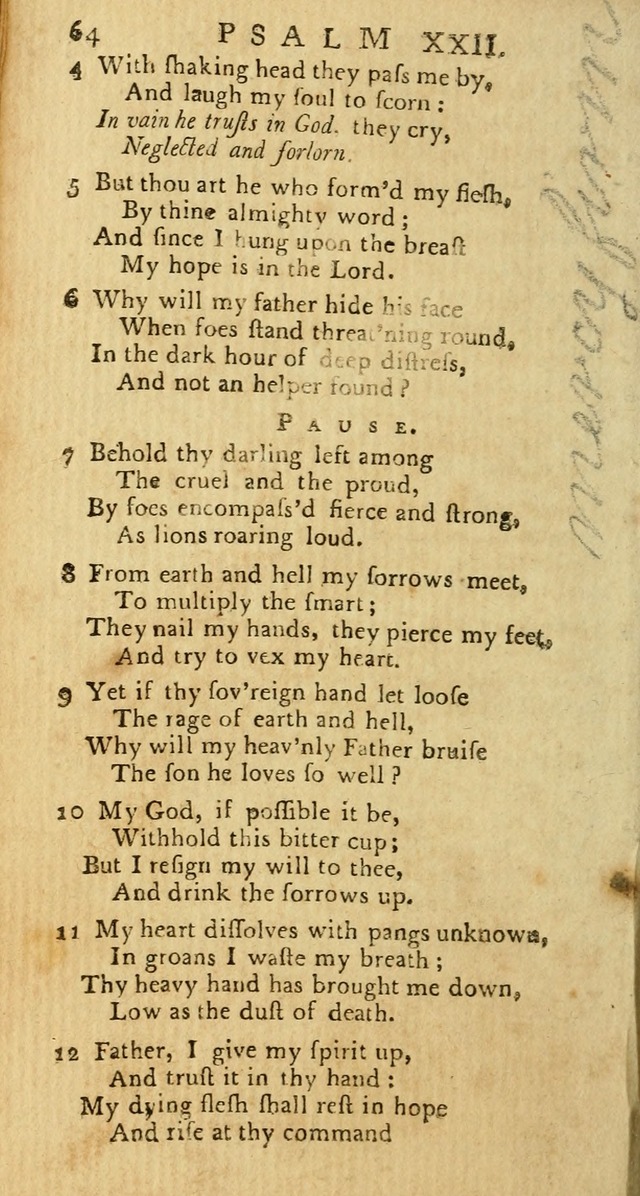 64 PSALM XXII.
4 With ſhaking head they paſs me by,
And laugh my ſoul to ſcorn :
In vain he truſts in God. they cry,
Neglected and forlorn.
5 But thou art he who form'd my fleſh,
By thine almighty word ;
And ſince I hung upon the breaſt
My hope is in the Lord.
6 Why will my father hide his face
When foes ſtand threat'ning round,
In the dark hour of deep diſtreſs,
And not an helper found ?
PAUSE.
7 Behold thy darling left among
The cruel and the proud,
By foes encompaſs'd fierce and ſtrong,
As lions roaring loud.
8 From earth and hell my ſorrows meet,
To multiply the ſmart ;
They nail my hands, they pierce my feet,
And try to vex my heart.
9 Yet if thy ſov'reign hand let looſe
The rage of earth and hell,
Why will my heav'nly Father bruiſe
The ſon he loves ſo well ?
10 My God, if poſſible it be,
Withhold this bitter cup ;
But I reſign my will to thee,
And drink the ſorrows up.
11 My heart diſſolves with pangs unknown,
In groans I waſte my breath ;
Thy heavy hand has brought me down,
Low as the duſt of death.
12 Father, I give my ſpirit up,
And truſt it in thy hand :
My dying fleſh ſhall reſt in hope
And riſe at thy command